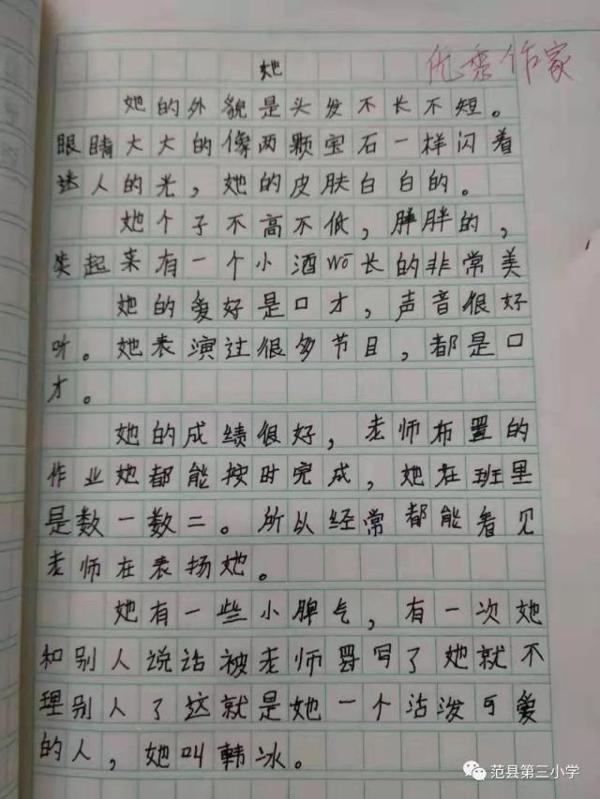 她
优秀作家
她的外貌是头发不长不短。
眼睛大大的像两颗宝石一样闪着
迷人的光，她的皮肤白白的。
她个子不高不低，胖胖的，
笑起来有一个小酒wō长的非常美
她的爱好是口才，声音很好
听。她表演过很多节目，都是口
才。
她的成绩很好，老师布置的
作业她都能按时完成，她在班里
是数一数二。所以经常都能看见
老师在表扬她。
她有一些小脾气，有一次她
和别人说话被老师罚写了她就不
理别人了这就是她一个活泼可爱
的人，她叫韩冰。
范县第三小学